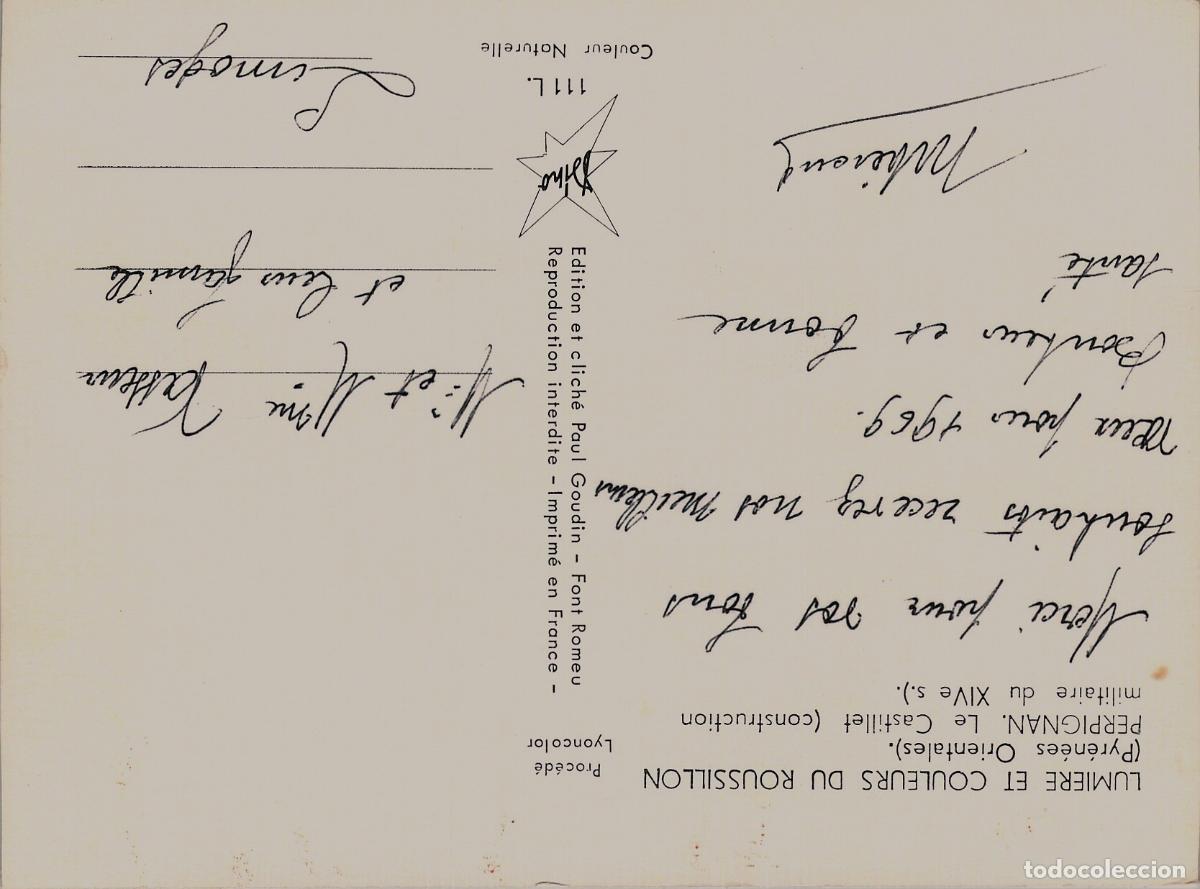 LUMIERE ET COULEURS DU ROUSSILLON
(Pyrénées Orientales).
PERPIGNAN. Le Castillet (construction
militaire du XIVe s.).
Merci pour vos bons
souhaits recevez nos meilleurs
vœux pour 1969.
Bonheur et bonne
santé
Procédé
Lyoncolor
Edition et cliché Paul Goudin - Font Romeu
Reproduction interdite - Imprimé en France -
Dino
111 L.
Couleur Naturelle
Mr et Mme
et leur famille
Limoges
todocoleccion